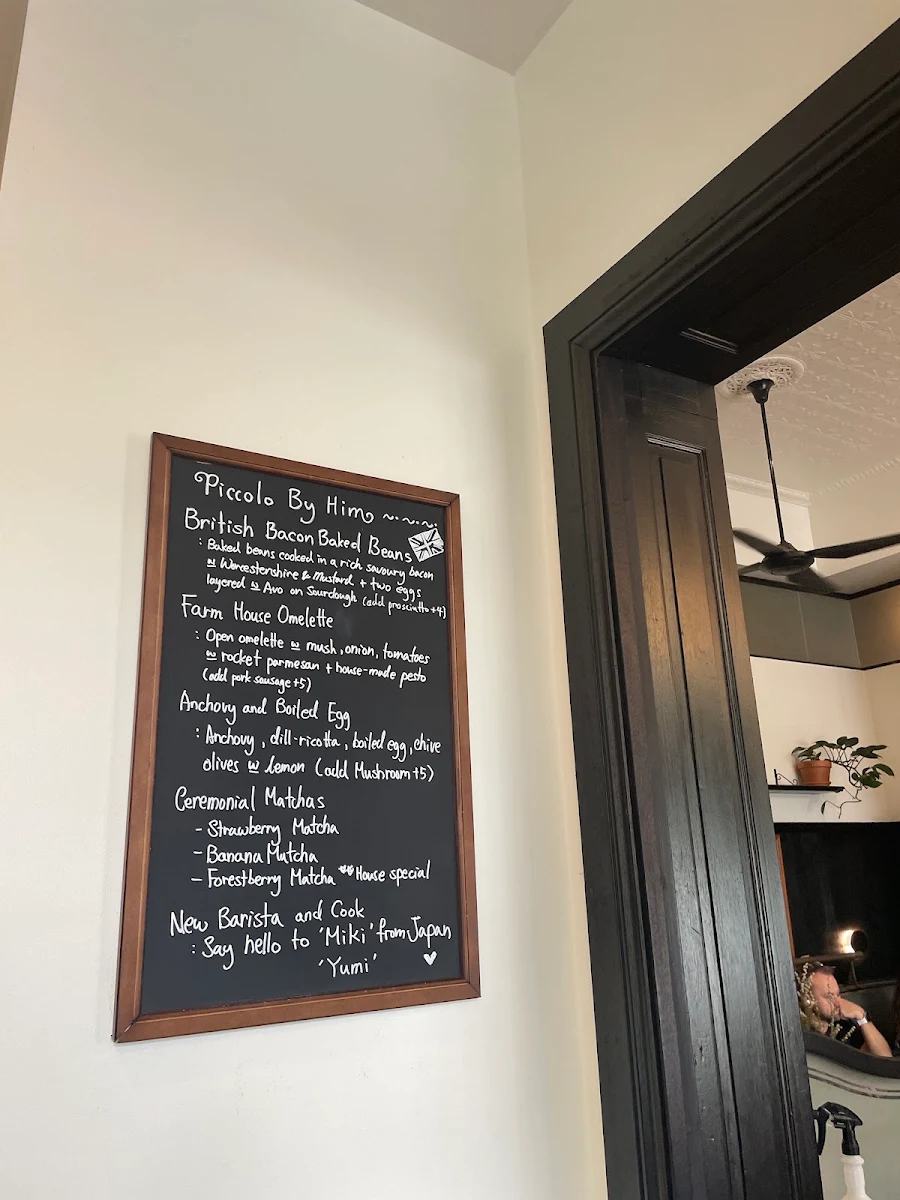 Piccolo By Him
British Bacon Baked Beans
: Baked beans cooked in a rich savoury bacon
w Worcestershire & Mustard + two eggs
layered w Avo on Sourdough (add prosciutto +4)
Farm House Omelette
: Open omelette w mush, onion, tomatoes
w rocket parmesan + house-made pesto
(add pork sausage +5)
Anchovy and Boiled Egg
: Anchovy, dill-ricotta, boiled egg, chive
olives w lemon (add Mushroom +5)
Ceremonial Matchas
- Strawberry Matcha
- Banana Matcha
- Forestberry Matcha House special
New Barista and Cook
: Say hello to 'Miki' from Japan
'Yumi'